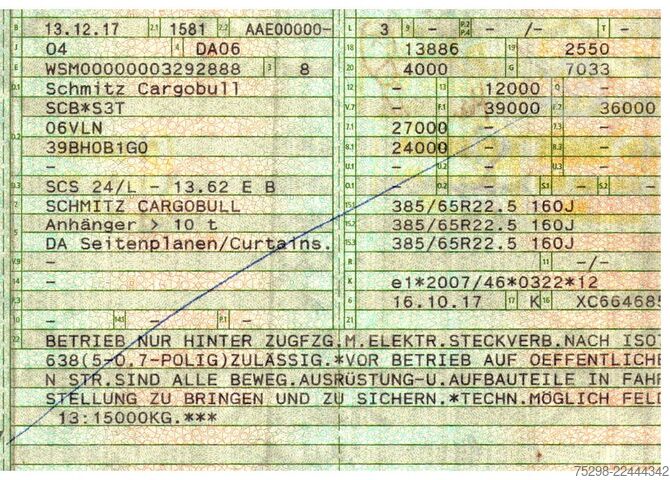 B 13.12.17 2.1 1581 2.2 AAE00000- L 3 9 - P.2 P.4 - /- T -
J 04 4 DA06 18 13886 19 2550
E WSM00000003292888 3 8 20 4000 G 7033
D.1 Schmitz Cargobull - 13 12000 Q -
SCB*S3T V.7 - F.1 39000 F.2 36000
D.2 06VLN 7.1 27000 - 7.3 -
39BH0B1G0 8.1 24000 - 8.3 -
- U.1 - U.2 - S.1 - S.2 -
D.3 SCS 24/L - 13.62 E B
2 SCHMITZ CARGOBULL 15.1 385/65R22.5 160J
Anhänger > 10 t 15.2 385/65R22.5 160J
5 DA Seitenplanen/Curtains. 15.3 385/65R22.5 160J
V.9 - R - 11 -/-
14 - K e1*2007/46*0322*12
P.3 - 6 16.10.17 17 K 16 XC664685
10 - 14.1 - P.1 - 21
22 BETRIEB NUR HINTER ZUGFZG.M.ELEKTR.STECKVERB.NACH ISO7
638(5-O.7-POLIG)ZULÄSSIG.*VOR BETRIEB AUF OEFFENTLICHE
N STR.SIND ALLE BEWEG.AUSRÜSTUNG-U.AUFBAUTEILE IN FAHR
STELLUNG ZU BRINGEN UND ZU SICHERN.*TECHN.MÖGLICH FELD
13:15000KG.***
75298-22444342